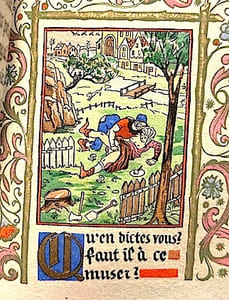 Qu'en dictes vous?
faut il à ce
muser?